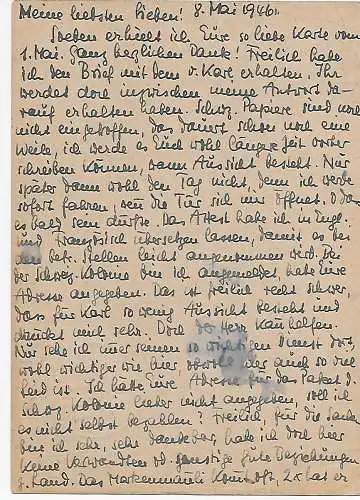 Meine liebsten Lieben! 8. Mai 1946.
Soeben erhielt ich Eure so liebe Karte vom
1. Mai. Ganz herzlichen Dank! Freilich habe
ich den Brief mit dem v. Karl erhalten. Ihr
werdet doch inzwischen meine Antwort da-
rauf erhalten haben. Schwz. Papiere sind noch
nicht eingetroffen, das dauert schon noch eine
Weile, ich werde es Euch wohl längere Zeit vorher
schreiben können, wann Aussicht besteht. Nur
später dann wohl den Tag nicht, denn ich werde
sofort fahren, wenn die Tür sich mir öffnet. O daß
es bald sein dürfte. Das Attest habe ich in Engl.
und Französisch übersetzen lassen, damit es bei
den betr. Stellen leicht angenommen wird. Bei
der Schweiz. Kolonie bin ich angemeldet, habe Eure
Adresse angegeben. Das ist freilich recht schwer,
dass für Karl so wenig Aussicht besteht und
drückt mich sehr. Doch der Herr kann helfen.
Nur sehe ich immer seinen so wichtigen Dienst dort,
wohl wichtiger wie hier, obwohl hier auch so viel
Leid ist. Ich hatte Eure Adresse für das Paket d.
schwz. Kolonie lieber nicht angegeben, soll ich
es nicht selbst bezahlen? Freilich, für die Sache
bin ich sehr, sehr dankbar, habe ich doch hier
keine Verwandten od. sonstige gute Beziehungen
z. Land. Das Markenmannli kommt oft, 2x hat er